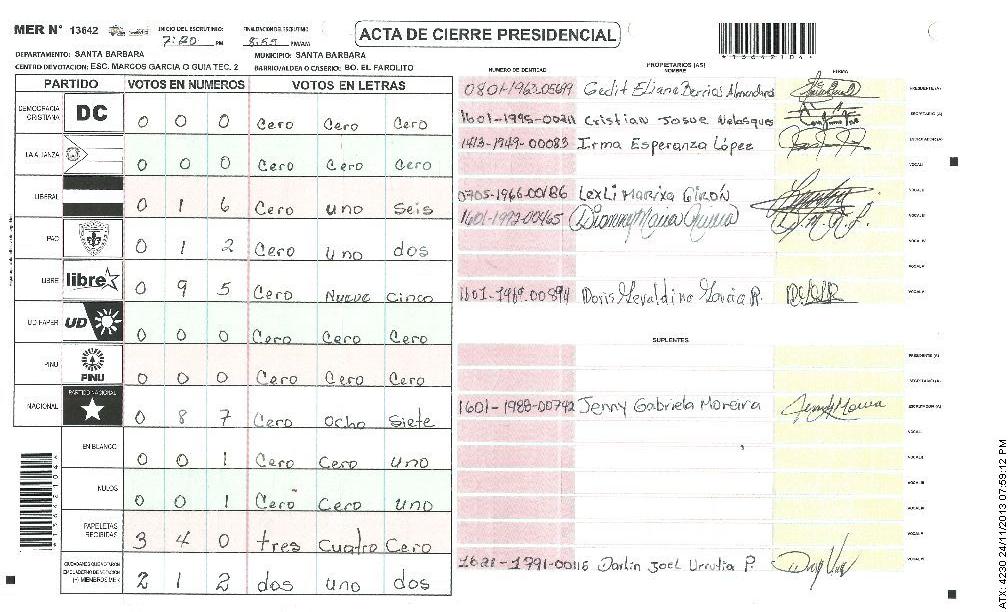 MER N° 13642
INICIO DEL ESCRUTINIO: 7:20 PM
FINALIZACION DEL ESCRUTINIO 8:55 PM/AM
ACTA DE CIERRE PRESIDENCIAL
*13642104*
DEPARTAMENTO: SANTA BARBARA
MUNICIPIO: SANTA BARBARA
CENTRO DE VOTACION: ESC. MARCOS GARCIA O GUIA TEC. 2
BARRIO/ALDEA O CASERIO: BO. EL FAROLITO
PARTIDO VOTOS EN NUMEROS VOTOS EN LETRAS
DEMOCRACIA CRISTIANA DC 0 0 0 Cero Cero Cero
LA ALIANZA 0 0 0 Cero Cero Cero
LIBERAL 0 1 6 Cero uno seis
PAC 0 1 2 Cero uno dos
LIBRE libre 0 9 5 Cero Nueve Cinco
UD FAPER UD 0 0 0 Cero Cero Cero
PINU PINU 0 0 0 Cero Cero Cero
NACIONAL PARTIDO NACIONAL 0 8 7 Cero Ocho siete
EN BLANCO 0 0 1 Cero Cero uno
NULOS 0 0 1 Cero Cero uno
PAPELETAS RECIBIDAS 3 4 0 tres cuatro Cero
2 1 2 dos uno dos
NUMERO DE IDENTIDAD
PROPIETARIOS (AS)
NOMBRE
FIRMA
0801-1963-05699 Gedit Eliana Berrios PRESIDENTE (A)
Cristian Josue Velasques SECRETARIO (A)
1413-1949-00083 Irma Esperanza López ESCRUTADOR (A)
VOCAL I
0705-1966-00186 Lexli Marixa Girón VOCAL II
1601-1972-00465 VOCAL III
VOCAL IV
VOCAL V
Doris Geraldina Garcia R. VOCAL VI
SUPLENTES
PRESIDENTE (A)
SECRETARIO (A)
1601-1988-00742 Jenny Gabriela Moreira ESCRUTADOR (A)
VOCAL I
VOCAL II
VOCAL III
VOCAL IV
VOCAL V
1621-1991-00116 Darlin Joel Urrutia P. VOCAL VI
ATX: 4230 24/11/2013 07:59:12 PM